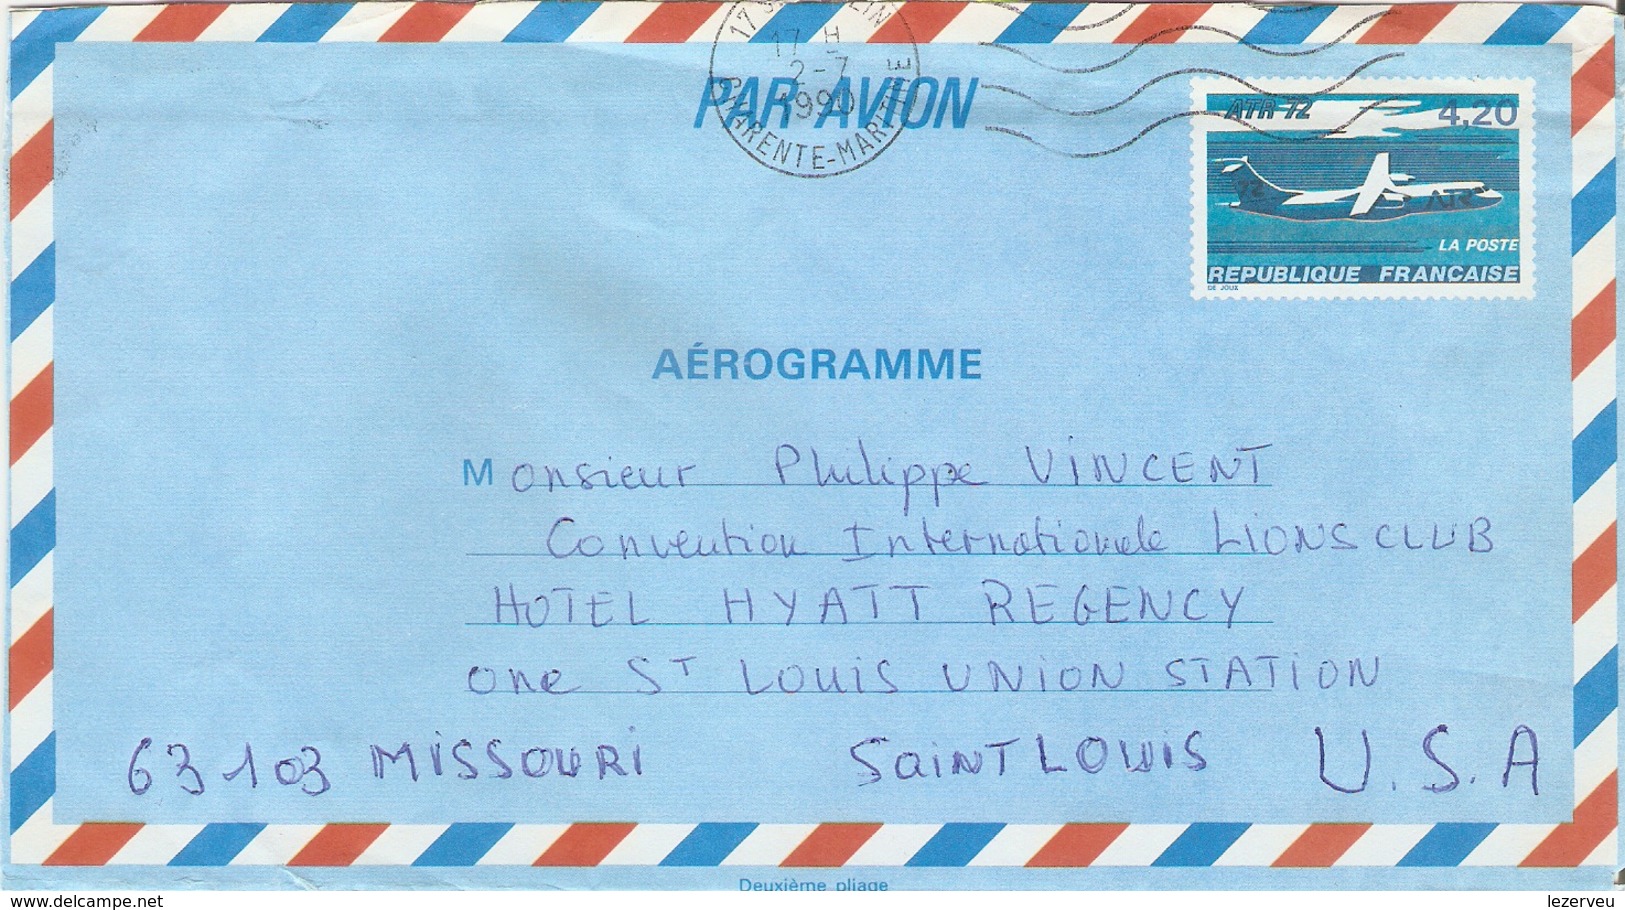 17 H
2-7
1990
CHARENTE-MARITIME
PAR AVION
ATR 72
4,20
72
ATR
LA POSTE
REPUBLIQUE FRANÇAISE
DE JOUX
AÉROGRAMME
Monsieur Philippe VINCENT
Convention Internationale LIONS CLUB
HOTEL HYATT REGENCY
One ST LOUIS UNION STATION
63103 MISSOURI SAINT LOUIS U.S.A
Deuxième pliage
delcampe.net
lezerveu